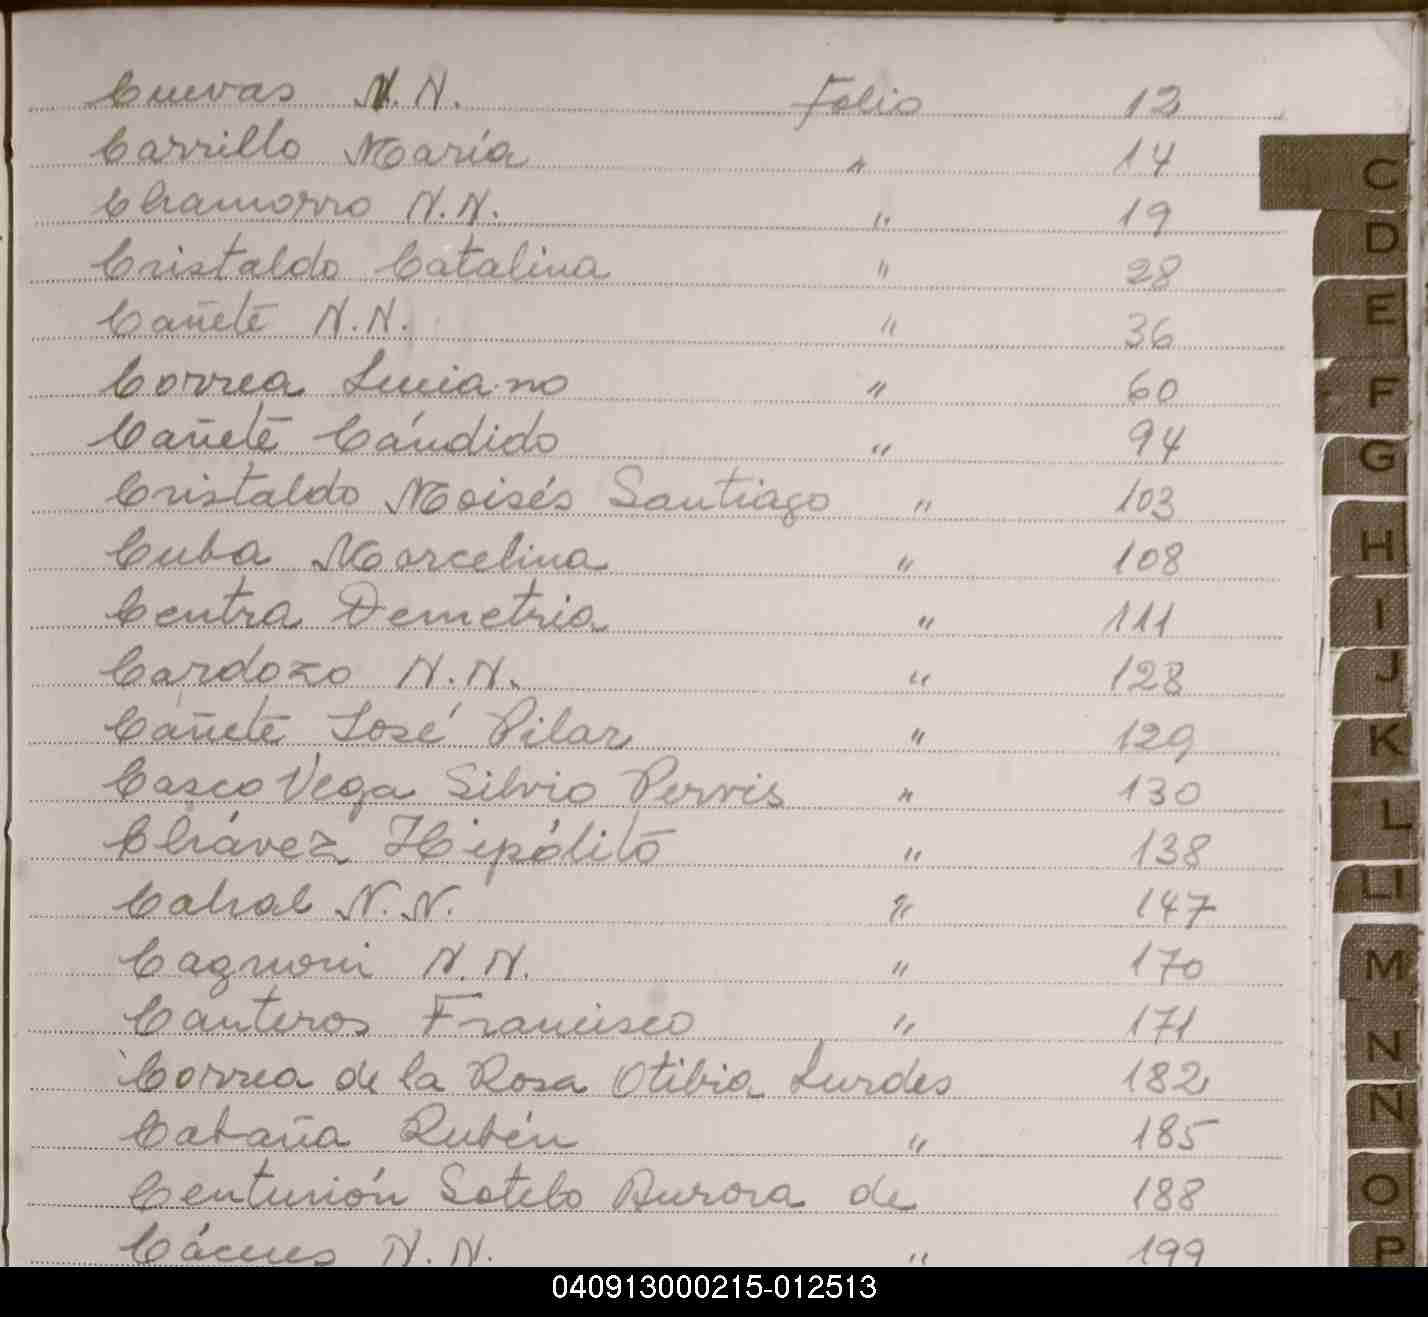 Cuevas N.N. Folio 12
Carrillo María " 14
Chamorro N.N. " 19
Cristaldo Catalina " 28
Cañete N.N. " 36
Correa Luciano " 60
Cañete Cándido " 94
Cristaldo Moisés Santiago " 103
Cuba Marcelina " 108
Centra Demetria " 111
Cardozo N.N. " 128
Cañete José Pilar " 129
Casco Vega Silvio Pervis " 130
Chávez Hipólito " 138
Cabral N.N. " 147
Cagnoni N.N. " 170
Canteros Francisco " 171
Correa de la Rosa Otibia Lurdes 182
Cabaña Rubén " 185
Centurión Sotelo Aurora de 188
Cáceres N.N. " 199
C
D
E
F
G
H
I
J
K
L
Ll
M
N
Ñ
O
P
040913000215-012513